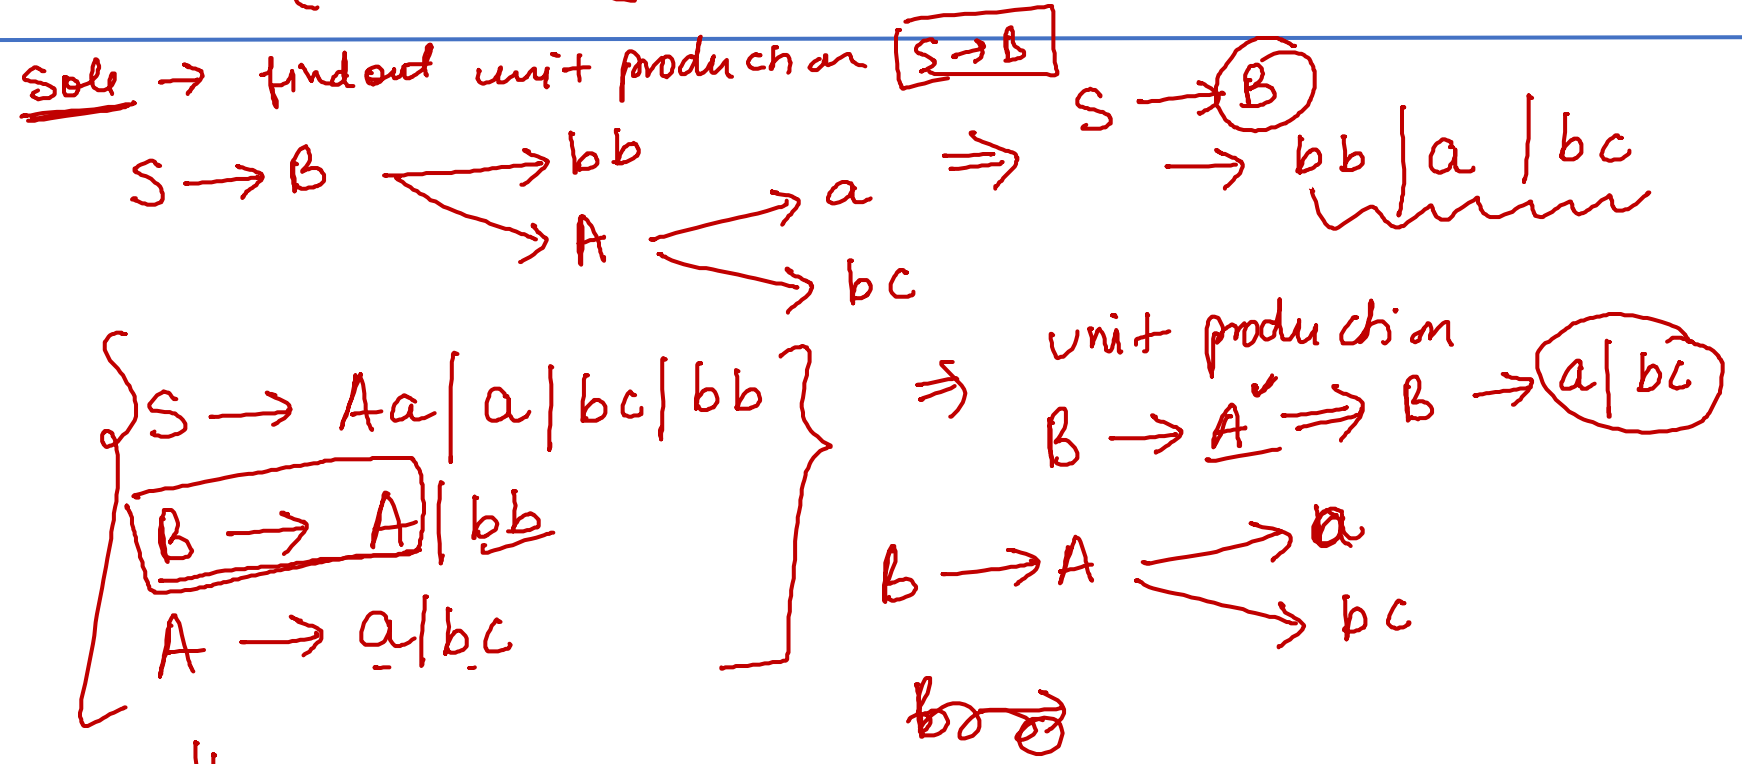 Soln → find out unit production S → B
S → B → bb
→ A → a
→ bc
⇒ S → B
→ bb | a | bc
S → Aa | a | bc | bb
B → A | bb
A → a | bc
⇒ unit production
B → A ✓ ⇒ B → a | bc
B → A → a
→ bc